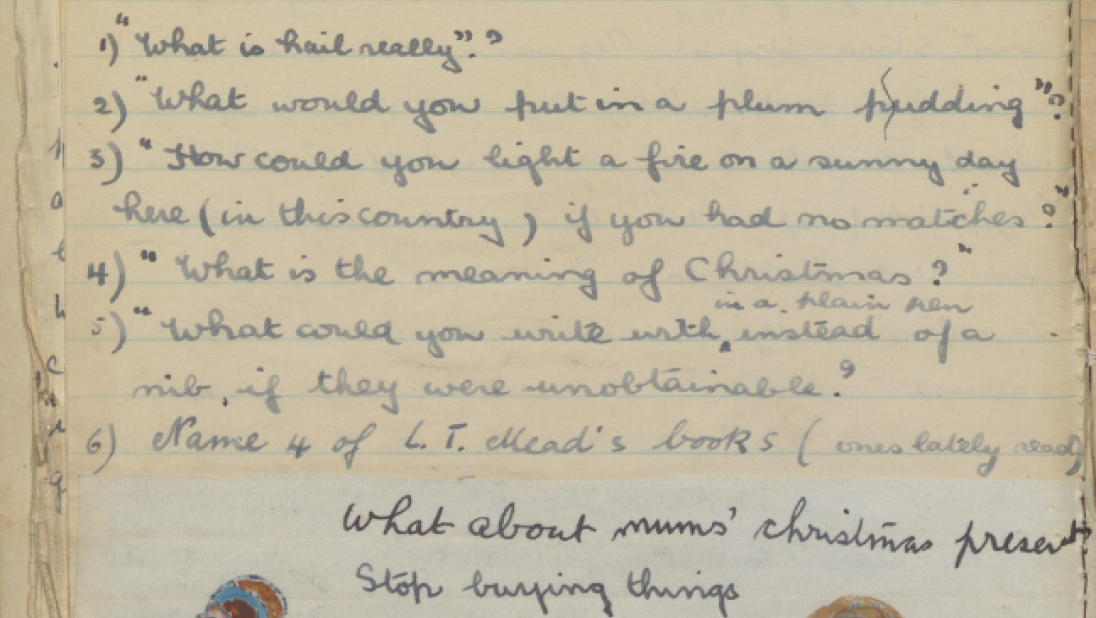 1) "What is hail really"?
2) "What would you put in a plum pudding"?
3) "How could you light a fire on a sunny day
here (in this country) if you had no matches?"
4) "What is the meaning of Christmas?"
in a plain pen
5) "What could you write with instead of a
nib if they were unobtainable?
6) Name 4 of L. T. Mead's books (ones lately read)
What about mums' christmas present
Stop buying things